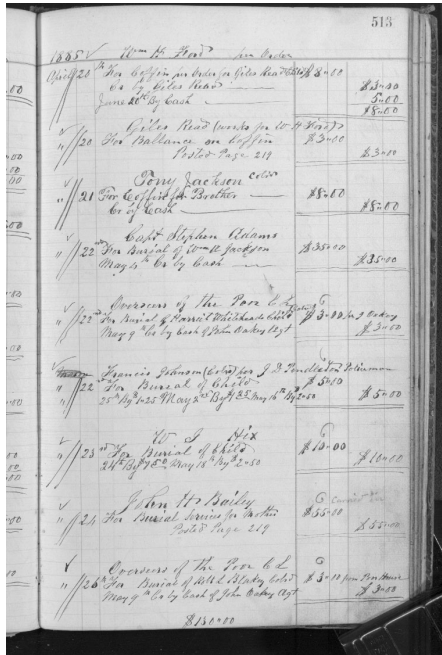 513
1885 Wm H Ford per Order
April 20th For Coffin per Order for Giles Read $8-00
Cr by Giles Read $3-00
June 20th By Cash 5-00
$8-00
Giles Read (works for W H Ford)
" 20 For Ballance on Coffin $3-00
Posted Page 219 $3-00
Tony Jackson Cold
" 21 For Coffin for Brother $8-00
Cr by Cash $8-00
Capt Stephen Adams
" 22nd For Burial of Wm A Jackson $35-00
May 4th Cr by Cash $35-00
Overseers of the Poor C L
" 22nd For Burial of Harriet Whiteheads Child $3-00 per J Oakey
May 9th Cr by Cash of John Oakey Agt $3-00
Francis Johnson (Cold) for J D Pendleton Policeman
" 22nd For Burial of Child $5-00
25th By $1-25 May 2nd By 1.25 May 16th By 2-50 $5-00
W J Hix
" 23rd For Burial of Child $10-00
24th By 7.50 May 18th By $2-50 $10-00
John H Bailey
" 24 For Burial Services for Mother $55-00
Posted Page 219 $55-00
Overseers of the Poor C L
" 26th For Burial of Blakey Cold $3-00 from Poor House
May 9th Cr by Cash of John Oakey Agt $3-00
$130-00